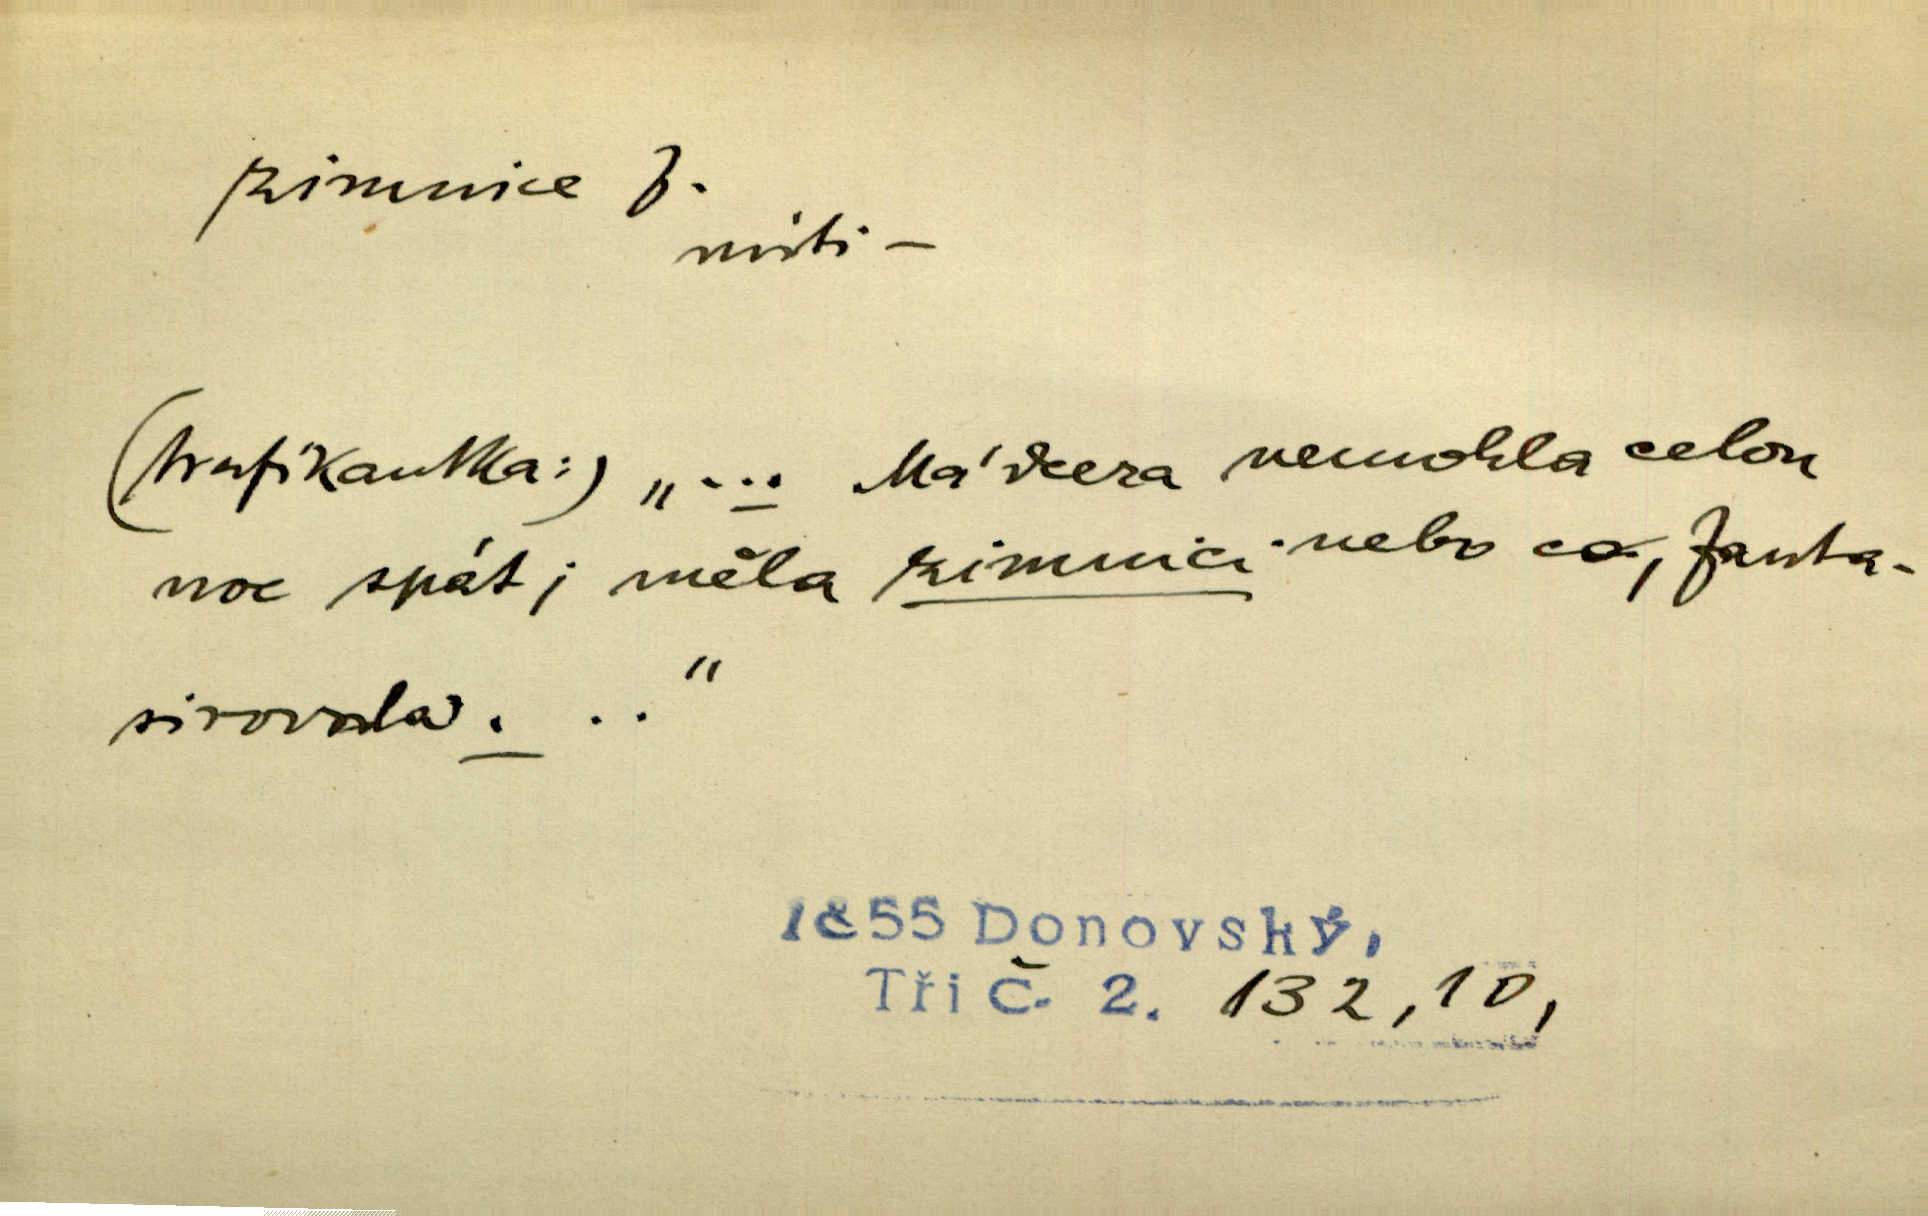 zimnice f.
míti –
(trafikantka:) „... Má dcera nemohla celou
noc spát; měla zimnici nebo co, fanta-
sirovala. .."
1c55 Donovský,
Tři č. 2. 132,10,